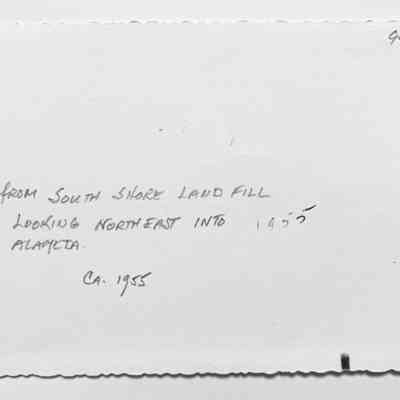 FROM SOUTH SHORE LAND FILL
LOOKING NORTHEAST INTO 1955
ALAMEDA.
CA. 1955